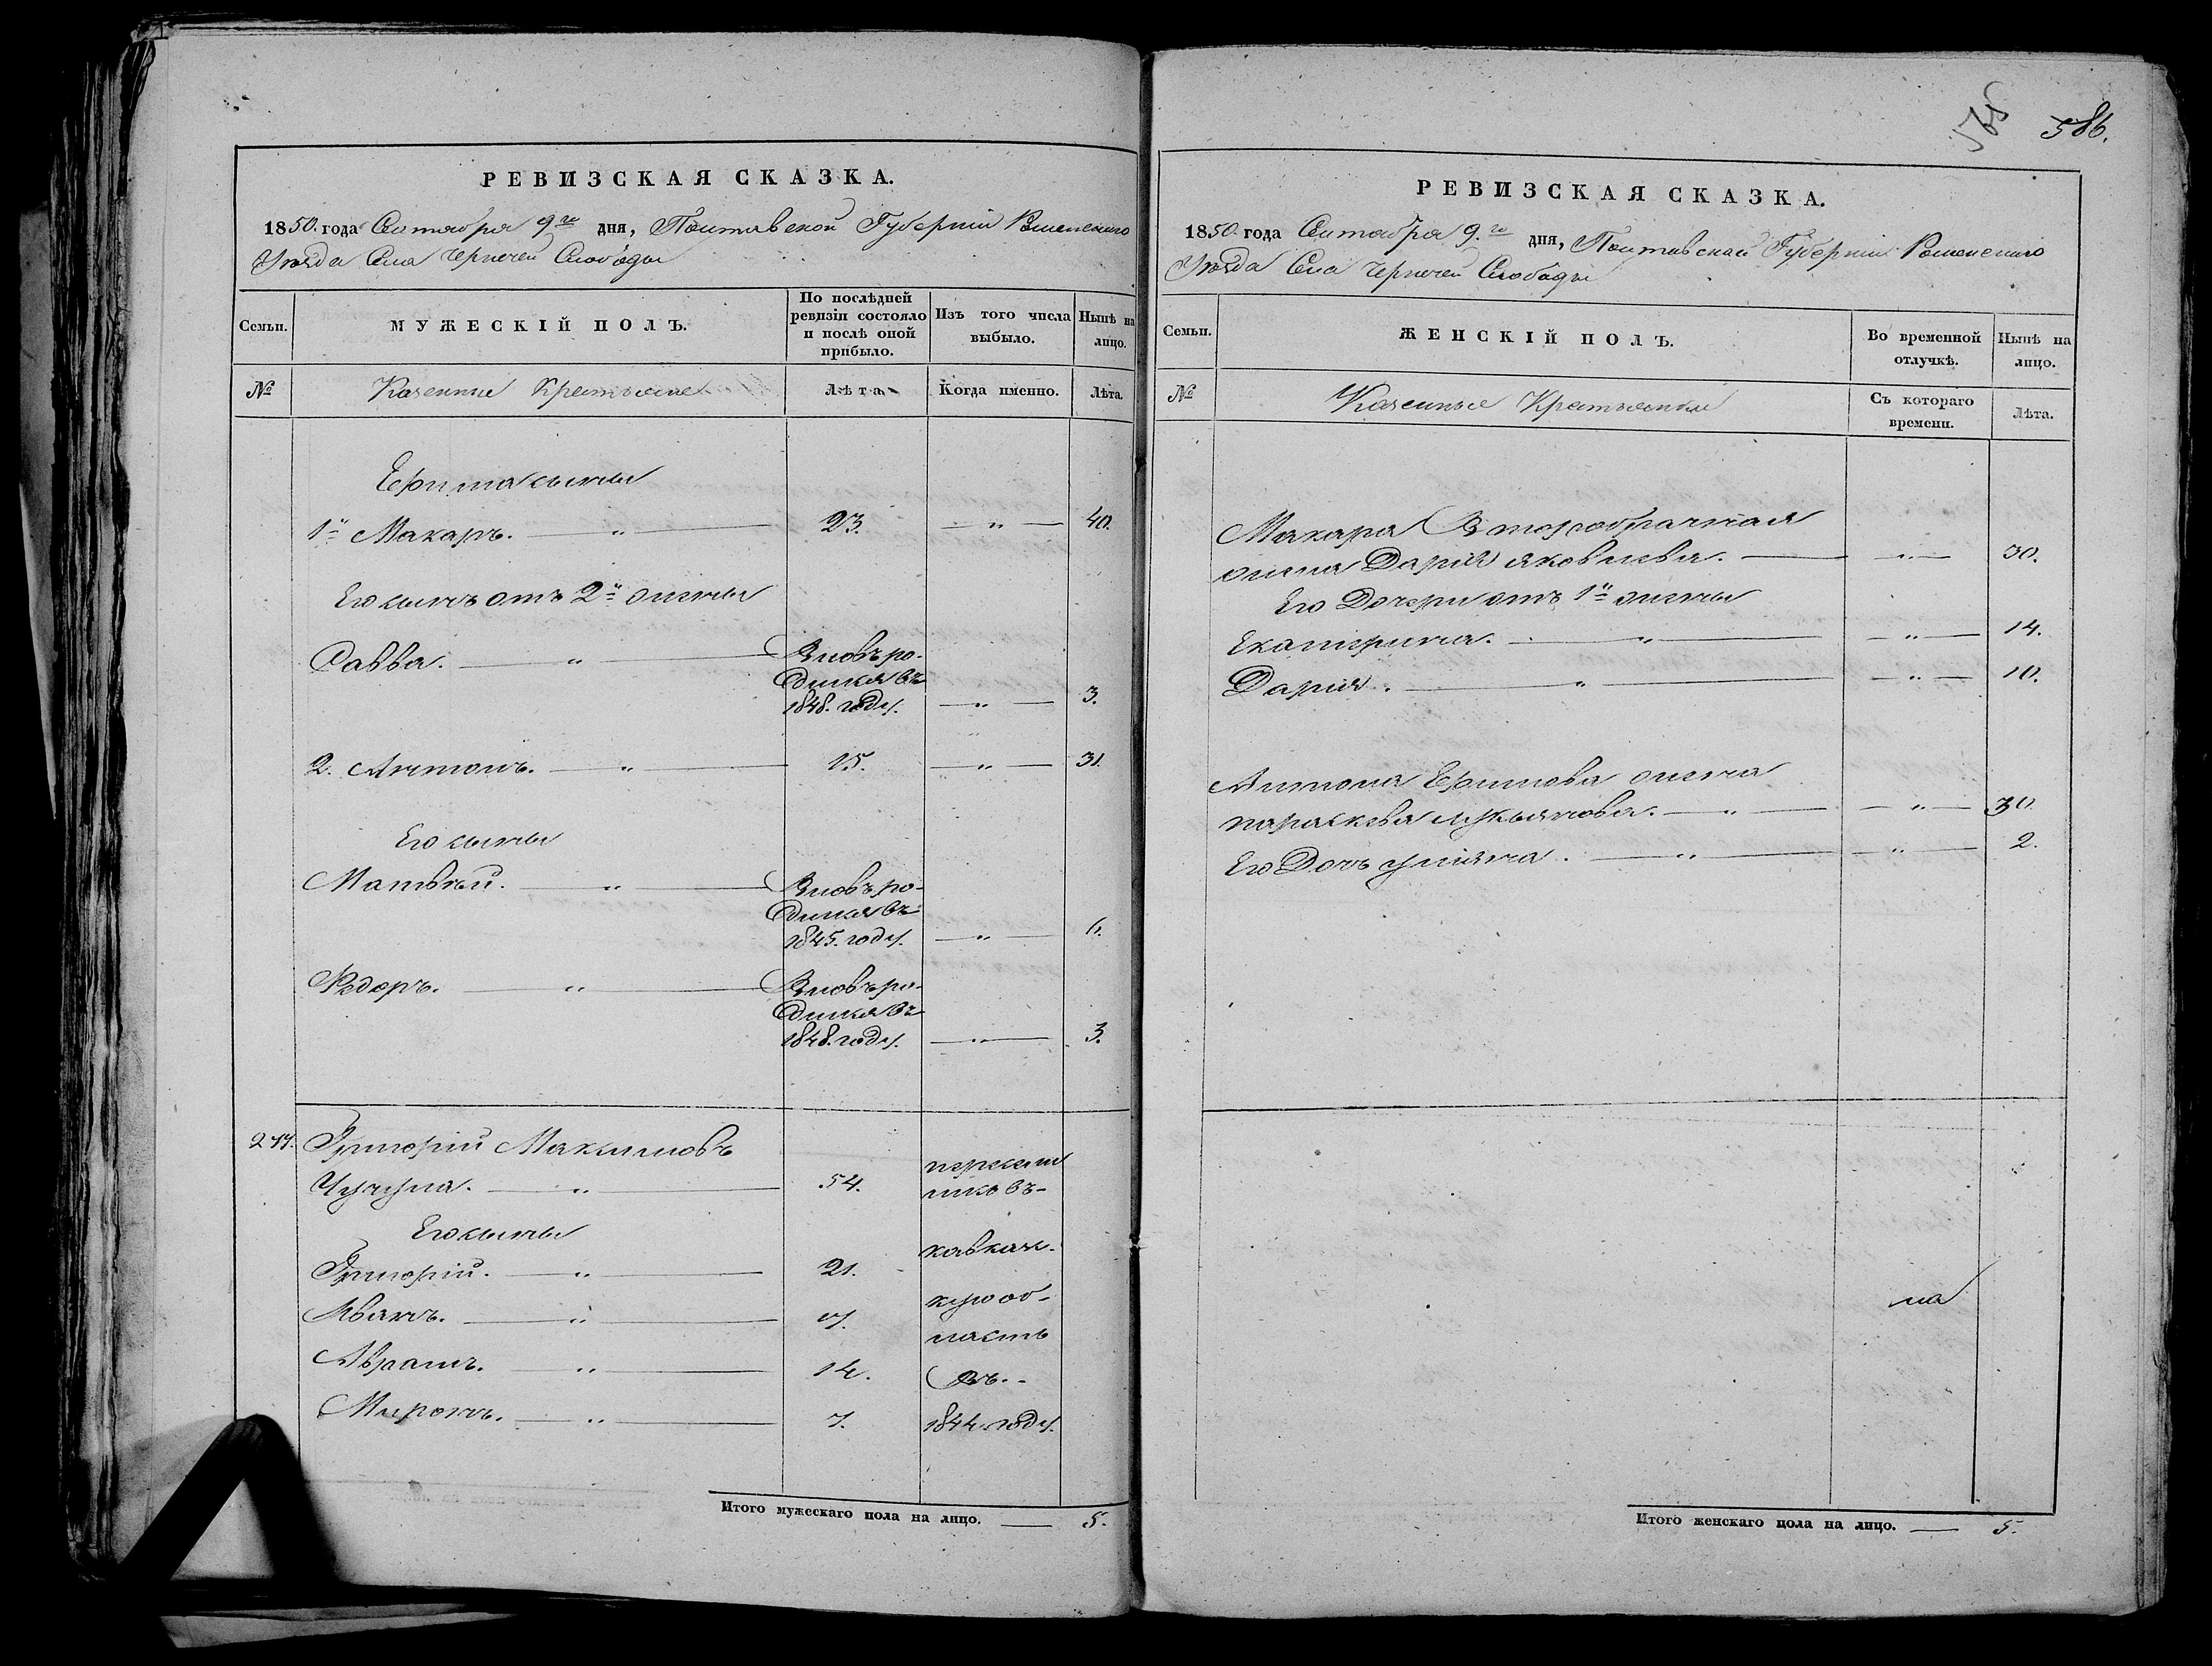 РЕВИЗСКАЯ СКАЗКА.
1850. года Сентября 9го дня, Полтавской Губерніи Роменскаго
Уезда Села Черпечей Слободы
Семьи.
МУЖЕСКІЙ ПОЛЪ.
По послѣдней ревизіи состояло и послѣ оной прибыло.
Изъ того числа выбыло.
Нынѣ на лицо.
№
Казенные Крестьяне
Лѣта.
Когда именно.
Лѣта.
Ефима сыны
1й Макаръ. — " — 23. — " — 40.
Его сынъ отъ 2й жены
Савва. — " — Вновь ро-
дился въ
1848. году. — " — 3.
2. Антонъ. — " — 15. — " — 31.
Его сыны
Матвѣй. — " — Вновь ро-
дился въ
1845. году. — " — 6.
Федоръ. — " — Вновь ро-
дился въ
1848. году. — " — 3.
Григорій Максимовъ
Чучупа. — " — 54.
Его сыны
Григорій. — " — 21.
Иванъ. — " —
Абрамъ. — " — 14.
Миронъ. — " — 7.
пересели
лись въ-
кавказ.
кую об-
ласть
въ.-
1844. году.
Итого мужескаго пола на лицо. — 5.
586.
РЕВИЗСКАЯ СКАЗКА.
1850 года Сентября 9.го дня, Полтавской Губерніи Роменскаго
Уезда Села Черпечей Слободы
Семьи.
ЖЕНСКІЙ ПОЛЪ.
Во временной отлучкѣ.
Нынѣ на лицо.
№
Казенные Крестьянки
Съ котораго времени.
Лѣта.
Макара Второбрачная
жена Дарія яковлева. — " — 30.
Его Дочери отъ 1й жены
Екатерина. — " — " — 14.
Дарія. — " — " — 10.
Антона Ефимова жена
параскева лукьянова. — " — " — 30.
Его Дочь уліяна. — " — " — 2.
на
Итого женскаго пола на лицо. — 5.